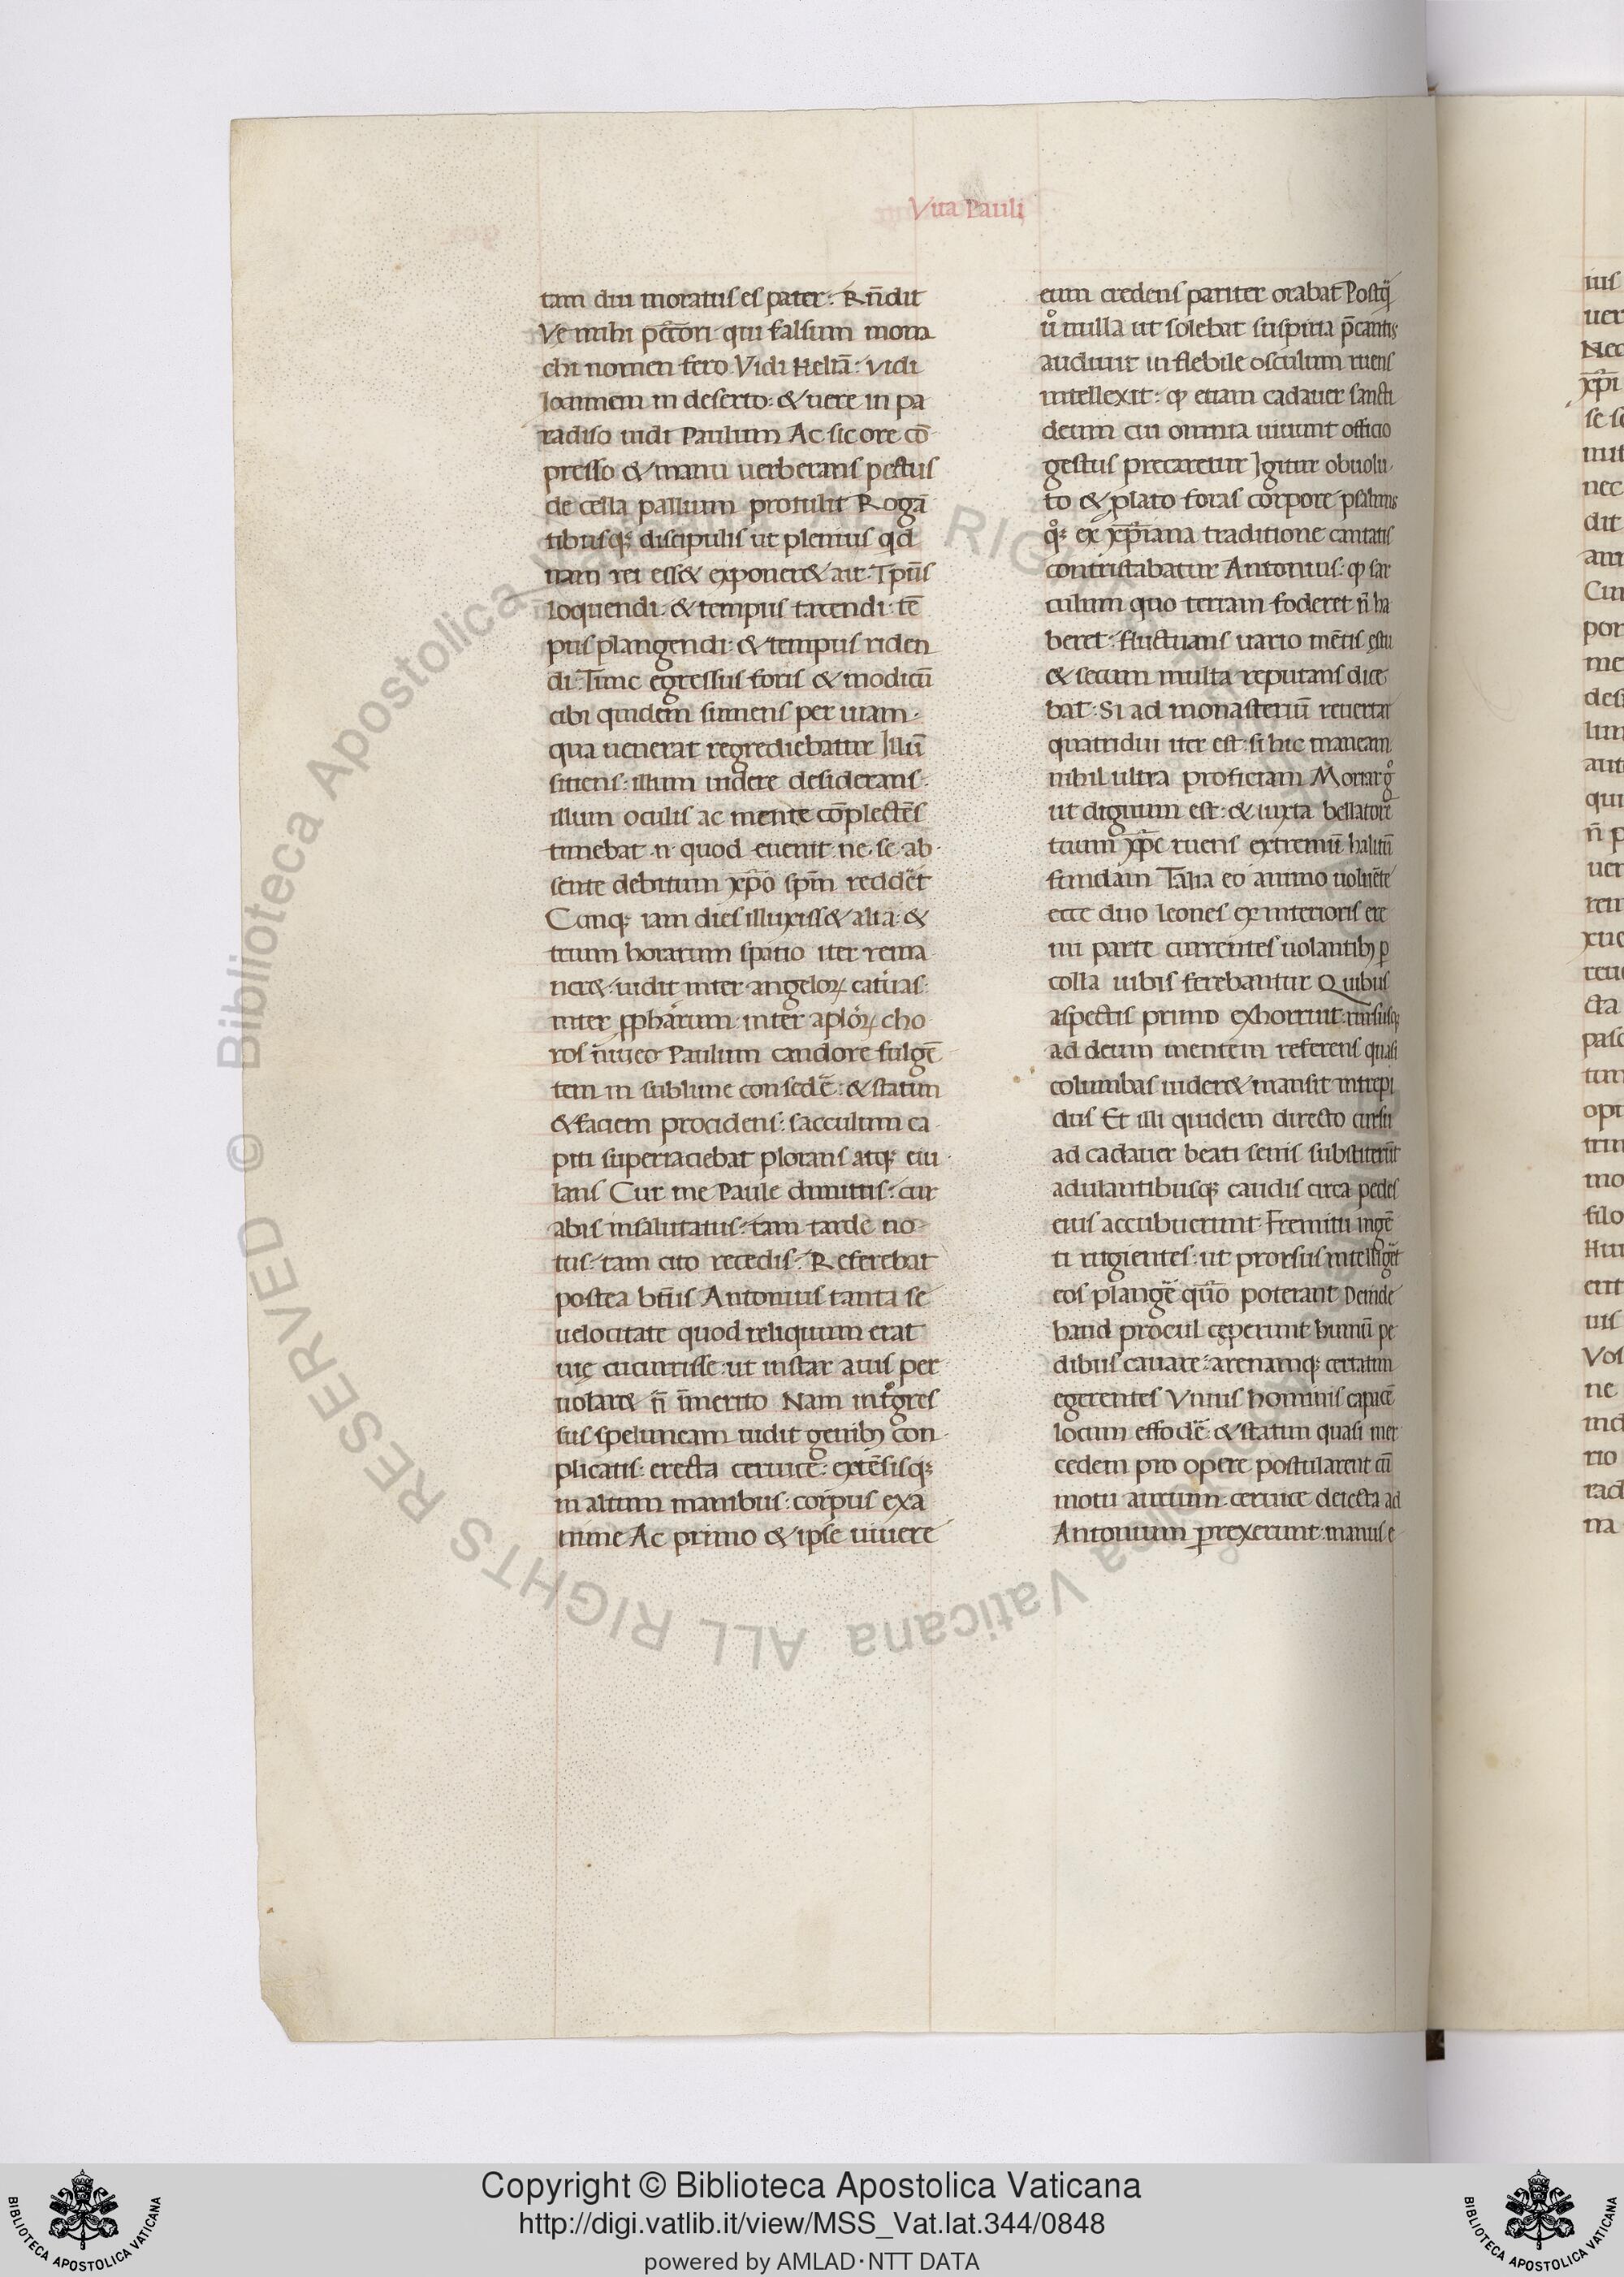 Vita Pauli
tam diu moratus es pater: Rñdit
Ve mihi pctōri qui falsum mona
chi nomen fero. Vidi Heliā: vidi
Ioannem in deserto: & uere in pa
radiso uidi Paulum. Ac sic ore cō
presso & manu uerberans pectus
de cella pallium protulit. Rogā
tibusq; discipulis ut plenius qd̄
nam rei esset exponeret ait. Tp̄us
loquendi: & tempus tacendi: tē
pus plangendi: & tempus riden
di. Tunc egressus foris & modicū
cibi quidem sumens per uiam
qua uenerat regrediebatur. Illū
sitiens: illum uidere desiderans:
illum oculis ac mente cōplectēs
timebat .n. quod euenit ne se ab
sente debitum xp̄o sp̄m reddēt
Cunq; iam dies illuxisset alia: &
trium horarum spatio iter rema
neret: uidit inter angeloꝝ cat̄uas:
inter ꝓphārum: inter aplōꝝ cho
ros niueo Paulum candore fulgē
tem in sublime consedē: & statim
& faciem procidens: sacculum ca
piti superiaciebat plorans atq; eiu
lans. Cur me Paule dimittis: cur
abis insalutatus: tam tarde no
tus: tam cito recedis. Referebat
postea btūs Antonius tanta se
uelocitate quod reliquum erat
uię cucurrisse: ut instar auis per
uolaret: ñ īmerito. Nam int̊gres
sus speluncam uidit genibꝫ con
plicatis: erecta ceruice: extēsisq;
in altum manibus: corpus exa
nime. Ac primo & ipse uiuere
eum credens pariter orabat. Postq̄
ů nulla ut solebat suspiria p̄cantis
audiuit in flebile osculum ruens
intellexit: ꝙ etiam cadauer sancti
deum cui omnia uiuunt officio
gestus precaretur. Igitur obuolu
to & plato foras corpore psalmis
q̊; ex xp̄iana traditione cantatis
contristabatur Antonius: ꝙ sar
culum quo terram foderet ñ ha
beret: fluctuans uario mētis ęstu
& secum multa reputans dice
bat: Si ad monasteriū reuertar
quatridui iter est: si hic maneam
nihil ultra proficiam. Moriar g̊
ut dignum est: & iuxta bellatorē
tuum xp̄e ruens extremū halitū
fundam. Talia eo animo uoluēte
ecce duo leones ex interioris ere
mi parte currentes uolantibꝫ ꝑ
colla iubis ferebantur. Quibus
aspectis primo exhorruit: rursusq;
ad deum mentem referens quasi
columbas uideret mansit intrepi
dus. Et illi quidem directo cursu
ad cadauer beati senis substiterūt
adulantibusq; caudis circa pedes
eius accubuerunt. Fremitu ingē
ti rugientes: ut prorsus intelligēt
eos plangē quō poterant. Deinde
haud procul cęperunt humū pe
dibus cauare: arenamq; certatim
egerentes. Unius hominis capacē
locum effodē: & statim quasi mer
cedem pro opere postularent cū
motu aurium ceruice deiecta ad
Antonium ꝑrexerunt: manus e
© Biblioteca Apostolica Vaticana ALL RIGHTS RESERVED
Copyright © Biblioteca Apostolica Vaticana
http://digi.vatlib.it/view/MSS_Vat.lat.344/0848
powered by AMLAD·NTT DATA
BIBLIOTECA APOSTOLICA VATICANA
BIBLIOTECA APOSTOLICA VATICANA